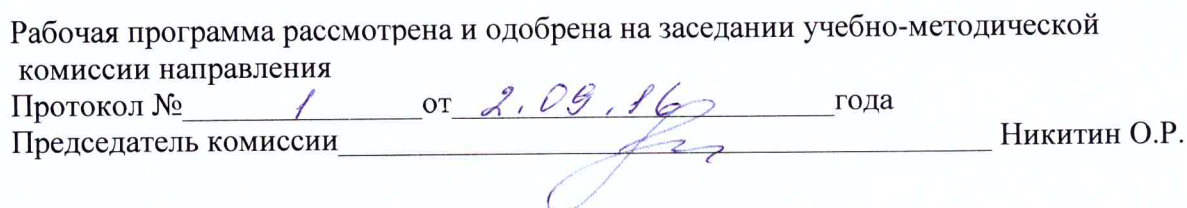 Рабочая программа рассмотрена и одобрена на заседании учебно-методической
комиссии направления
Протокол № 1 от 2.09.16 года
Председатель комиссии Никитин О.Р.